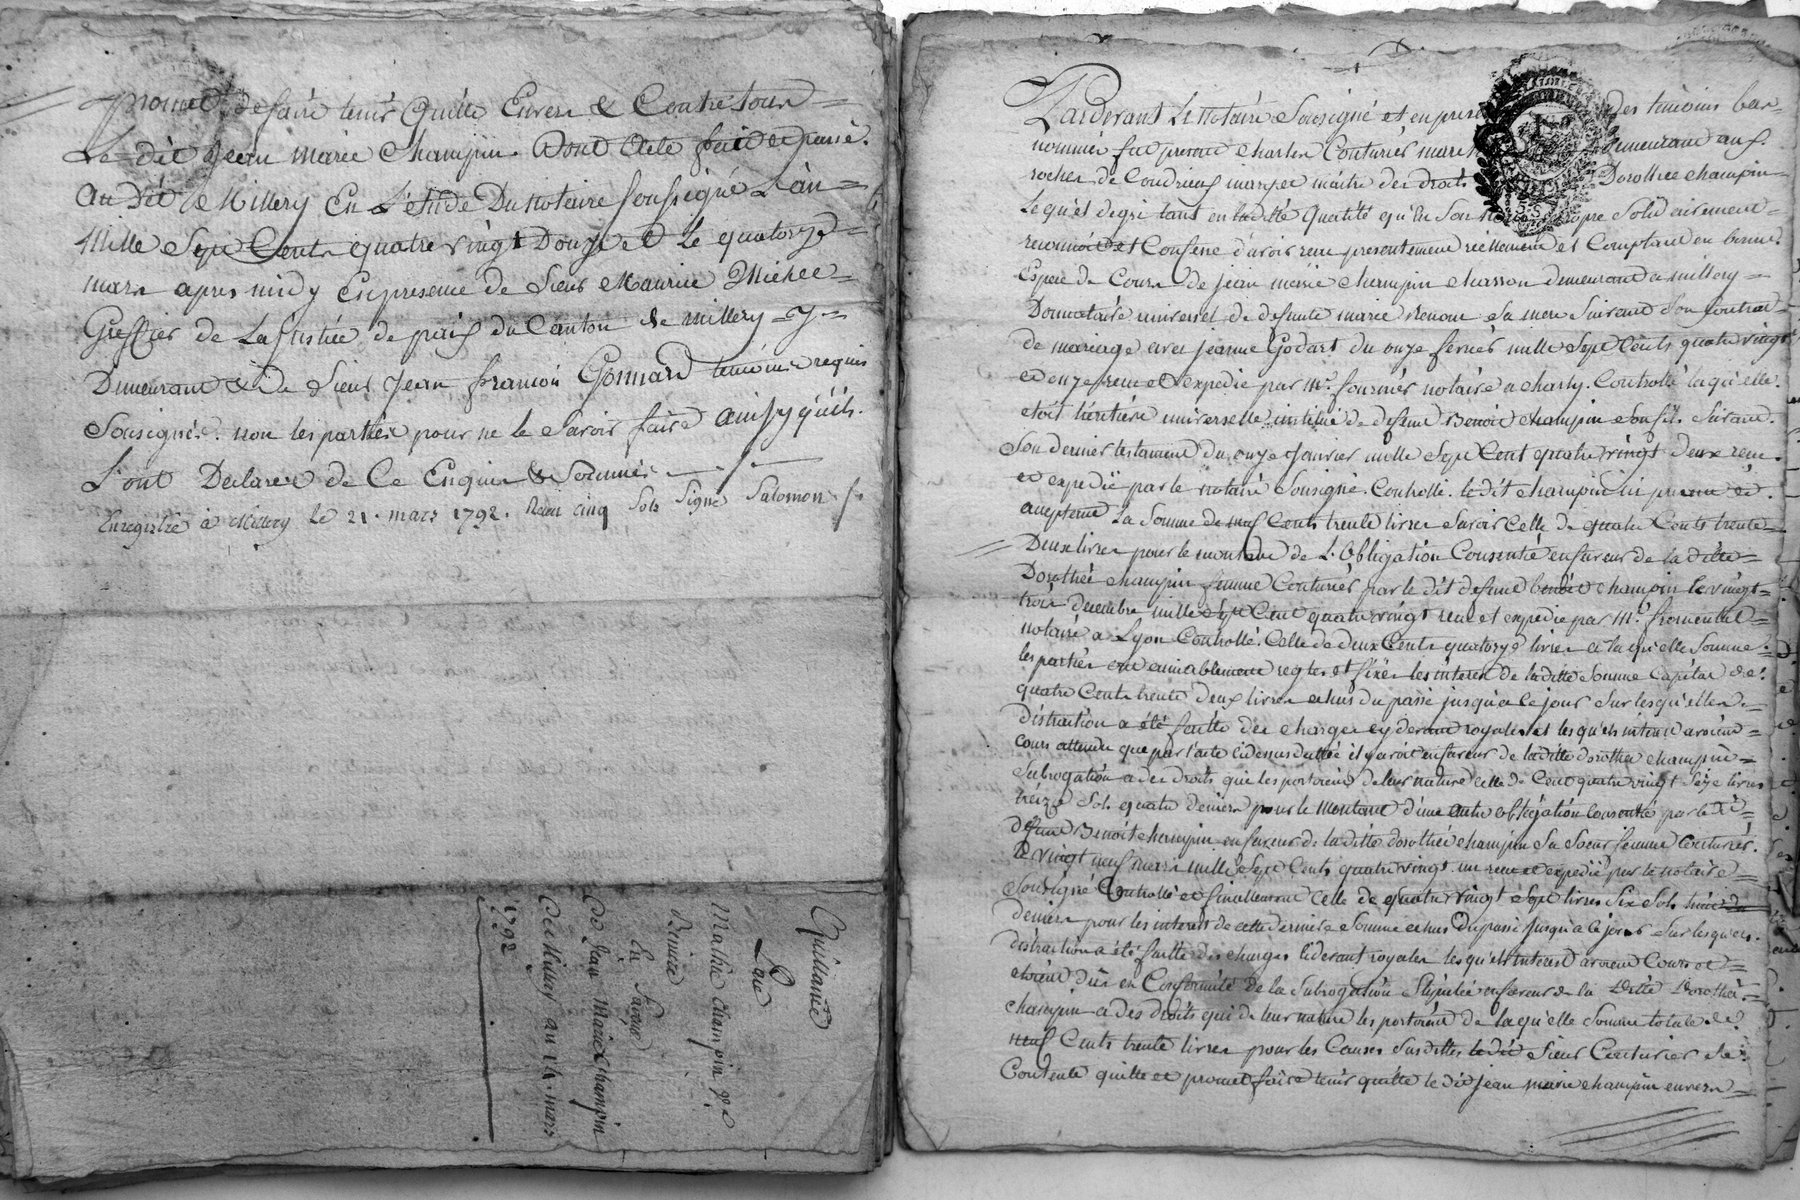 promet de faire tenir Quitte Envers & Contre tous =
Le dit Jean marie Champin. Dont Acte fait et passé.
Au dit Millery En L'Etude Du notaire Soussigné L'an =
Mille Sept Cents quatre vingt Douze et Le quatorze =
mars apres midy En presence de Sieur Maurice Michel =
Greffier de La Justice de paix du Canton de Millery = y =
Demeurant & de Sieur Jean françois Gonnard temoins requis
Soussignés. non les parties pour ne le Savoir faire ainsy qu'ils.
L'ont Declarés de Ce Enquis & Sommés
Enregistré à Millery Le 21. mars 1792. Recu cinq Sols Signé Salomon
Quittance
Par
Marie champin
En faveur
de Jean Marie Champin
de Millery du 14. mars
1792
Pardevant Le Notaire Soussigné et en presence des temoins bas =
nommés fut present Charles Couturier demeurant aux
roches de Condrieux mary et maitre des droits Dorothée champin =
Lequel de gré tant en ladite Qualité qu'en Son propre Solidairement =
reconnoit et Confesse d'avoir recu presentement réellement et Comptant en bonne.
Espece de Cours de Jean marie champin charron demeurant a millery =
Donnataire universel de defunte marie sa mere Suivant Son Contrat =
de mariage avec jeanne Godart du onze fevrier mille Sept Cents quatre vingt
et onze recu et Expedié par Me. fournier notaire a charly. Controllé laquelle.
etoit héritiere universelle instituée de defunt Benoit champin Son fils Suivant.
Son dernier testament du onze Janvier mille Sept Cent quatre vingt deux recu.
et expedié par le notaire Soussigné. Controllé. le dit champin ici present et.
acceptant La Somme de neuf Cents trente livres Savoir Celle de quatre Cents trente =
Deux livres pour le montant de L'Obligation Consentie en faveur de la ditte =
Dorothée champin femme Couturier par le dit defunt benoit champin le vingt =
trois decembre mille Sept Cent quatre vingt recu et expedié par Me. fromental =
notaire a Lyon Controllé. Celle de deux Cents quatorze livres a laquelle Somme.
les parties ont amiablement reglés et fixés les interets de laditte Somme Capital de.
quatre Cents trente deux livres echus du passé jusqu'a ce jour Sur lesquelles =
distraction a été faitte des charges cy devant royales et lesquels interets avoient =
cours attendu que par l'acte cidessus datté il y avoit en faveur de laditte dorothée champin =
Subrogation a des droits qui les portoient de leur nature Celle de Cent quatre vingt Seize livres
treize Sols quatre deniers pour le montant d'une autre obligation Consentie par le dit =
defunt Benoit champin en faveur de laditte dorothée champin Sa Soeur femme Couturier.
le vingt neuf mars mille Sept Cents quatre vingt un recu et expedié par le notaire =
Soussigné Controllé et finallement Celle de quatre vingt Sept livres Six Sols huit
deniers pour les interets de cette derniere Somme echus Du passé jusqu'a ce jour Sur lesquels.
distraction a été faitte des charges cidevant royales lesquels interets avoient Cours et =
etoient dûs en Conformité de la Subrogation Stipulée en faveur de la Ditte Dorothée =
champin a des droits qui de leur nature les portoient de laquelle Somme totale de.
neuf Cents trente livres pour les Causes Susdittes le dit Sieur Couturier Se
Contente quitte et promet faire tenir quitte le dit Jean marie champin envers =